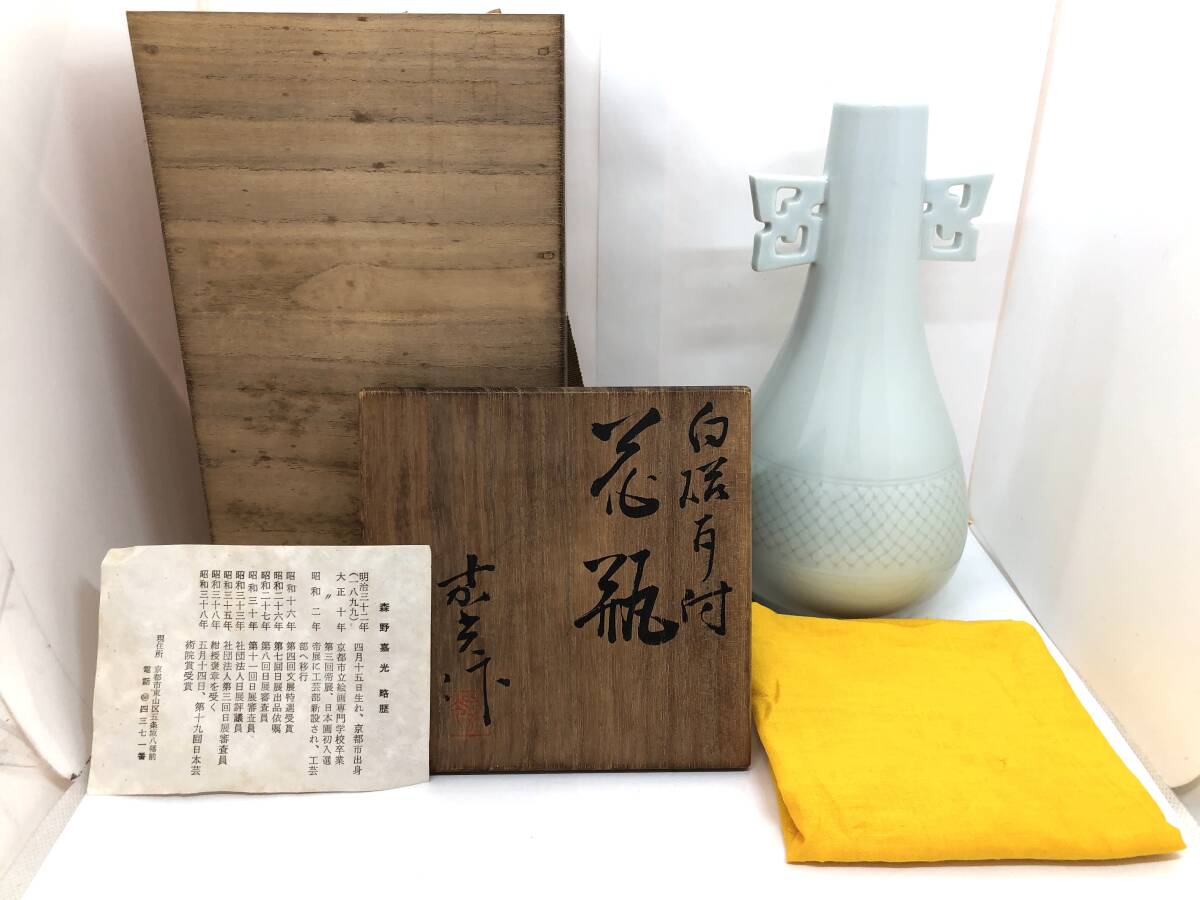 白磁耳付
花瓶
嘉光作
森野嘉光略歴
明治三十二年(一八九九) 四月十五日生れ、京都市出身
大正十年 京都市立絵画専門学校卒業
〃 第三回帝展、日本画初入選
昭和二年 帝展に工芸部新設され、工芸
部へ移行
昭和十六年 第四回文展特選受賞
昭和二十六年 第七回日展出品依嘱
昭和二十七年 第八回日展審査員
昭和三十年 第十一回日展審査員
昭和三十三年 社団法人日展評議員
昭和三十五年 社団法人第三回日展審査員
昭和三十八年 紺授褒章を受く
昭和三十八年 五月十四日、第十九回日本芸
術院賞受賞
現住所 京都市東山区五条坂八幡前
電話 ㊅四三七一番